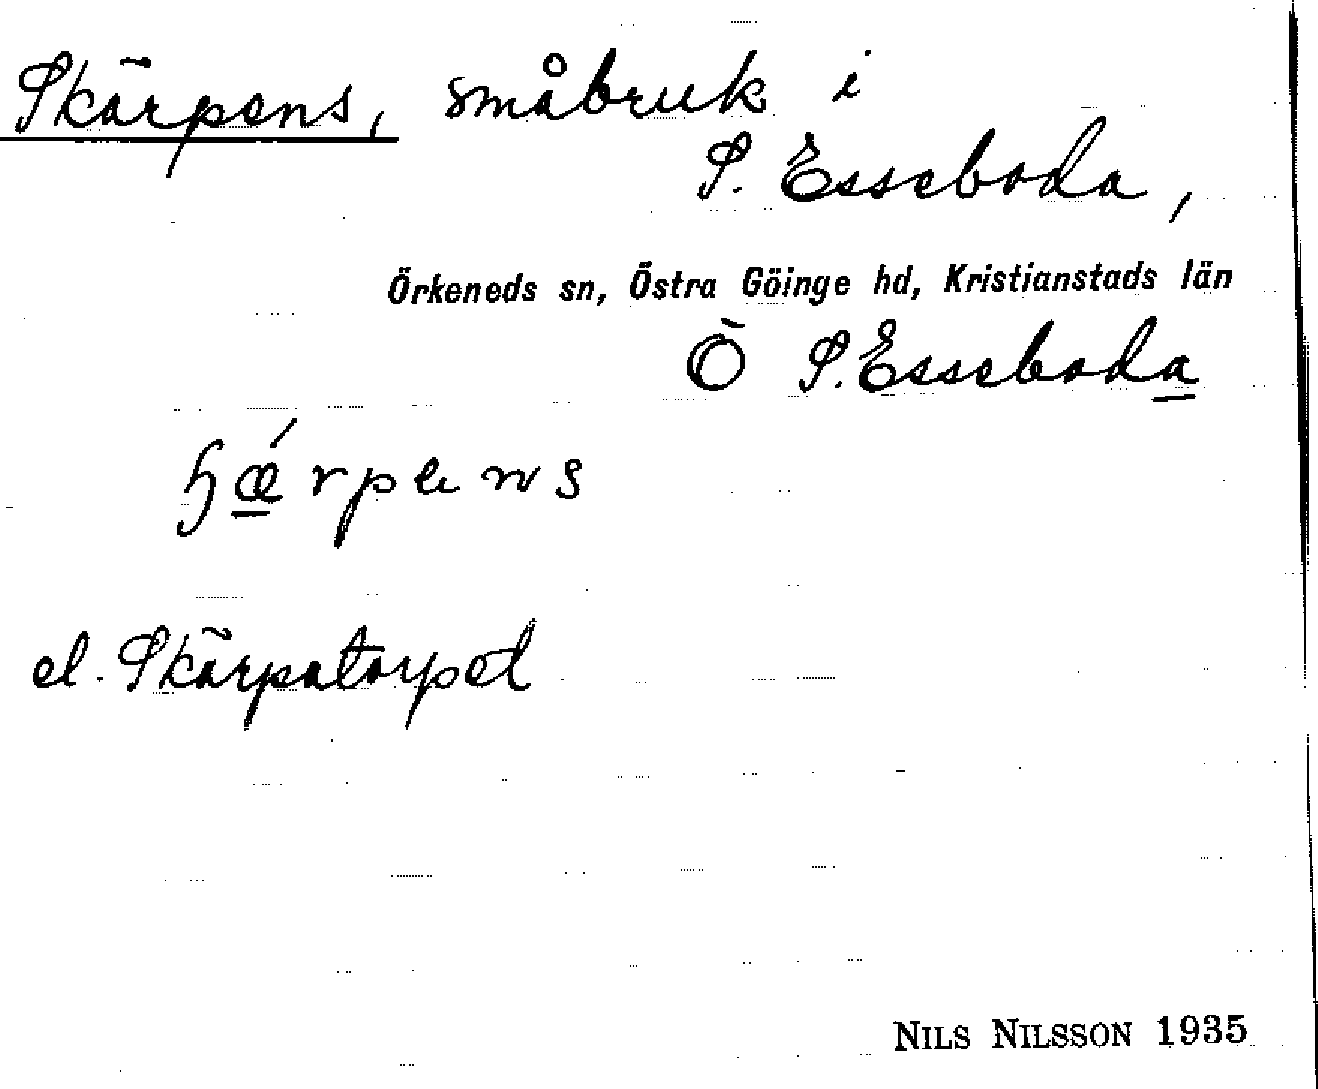 Skärpens, småbruk i
S. Esseboda,
Örkeneds sn, Östra Göinge hd, Kristianstads län
Ö S. Esseboda
el. Skärpatorpet
NILS NILSSON 1935